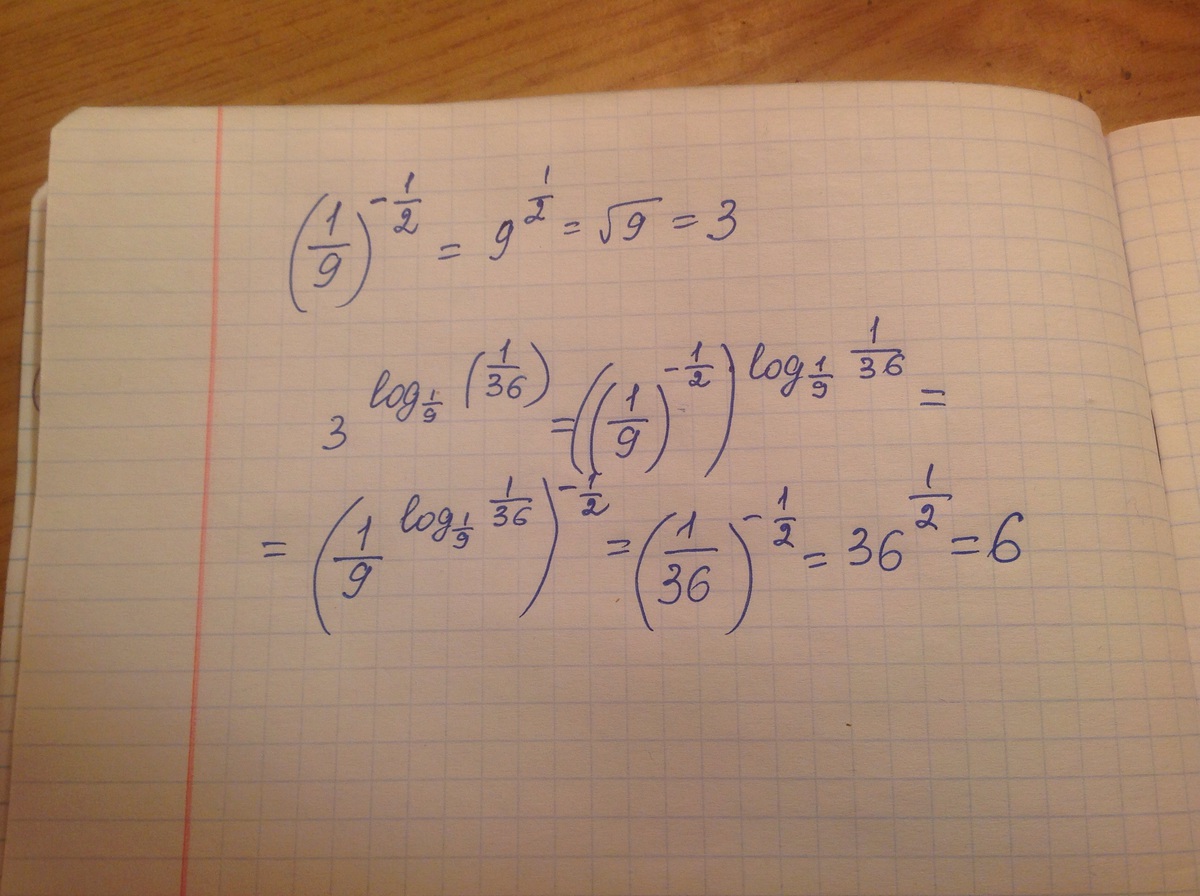 (1/9)^(-1/2) = 9^(1/2) = √9 = 3
3^(log_(1/9) (1/36)) = ((1/9)^(-1/2))^(log_(1/9) 1/36) =
= (1/9^(log_(1/9) 1/36))^(-1/2) = (1/36)^(-1/2) = 36^(1/2) = 6